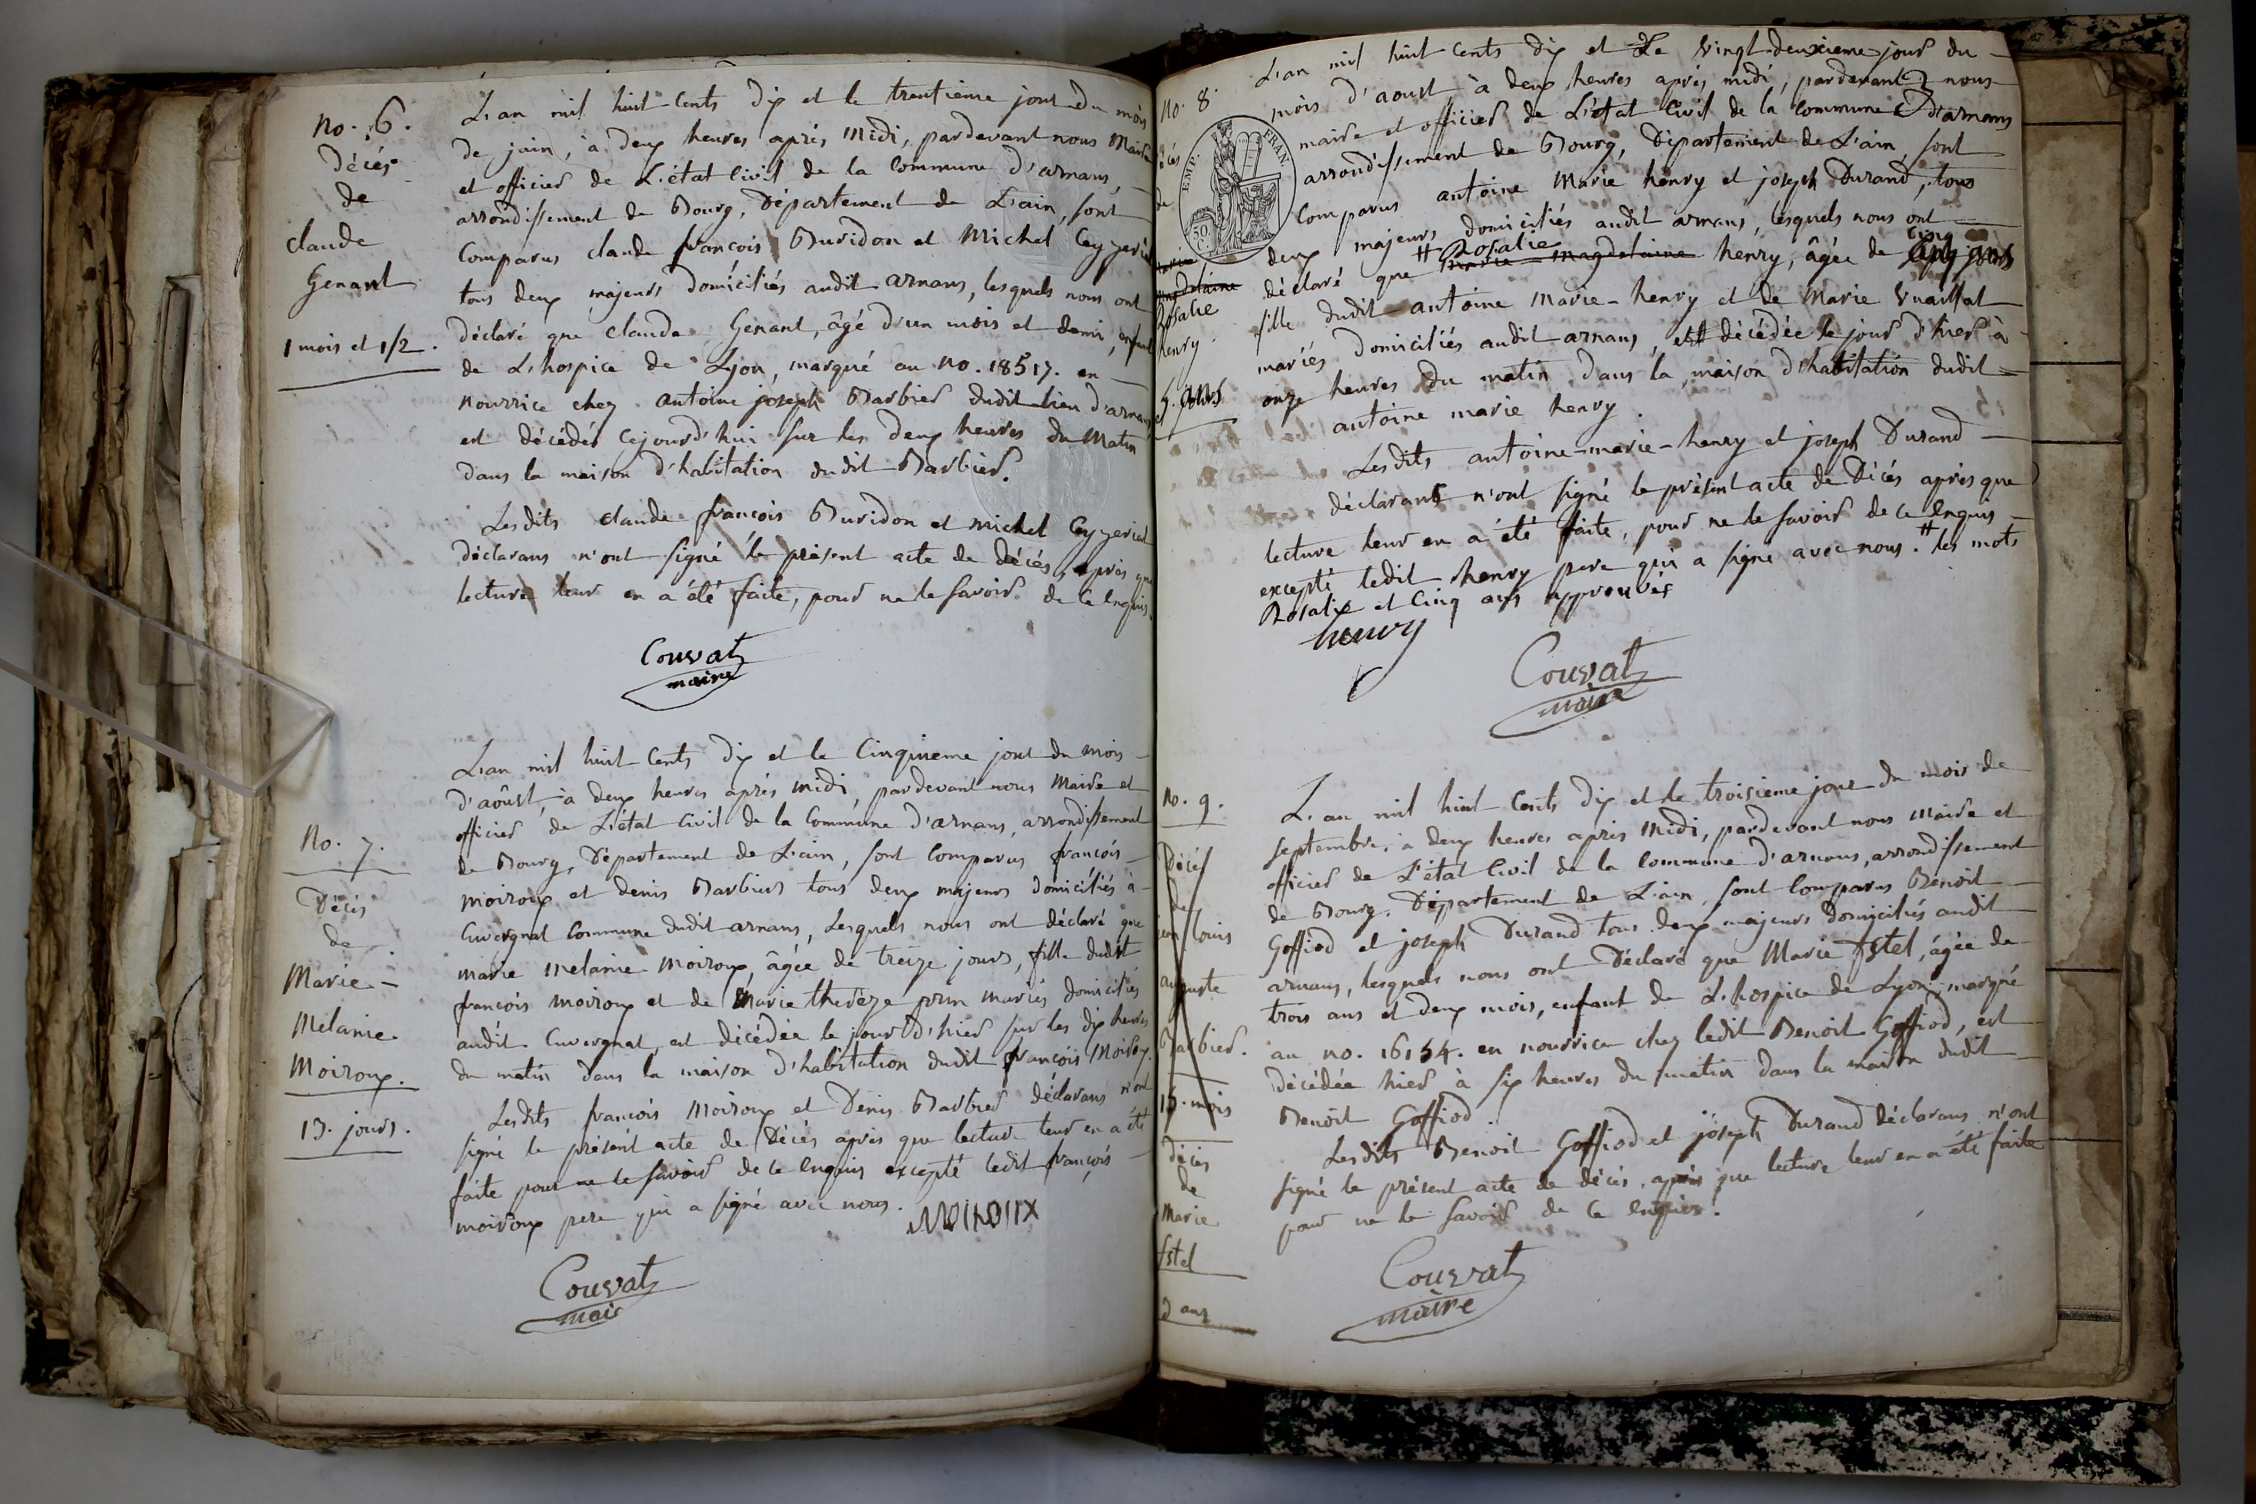 No. 6.
décés
de
claude
Genant
1 mois et 1/2.
L'an mil huit cents dix et le trentieme jour du mois
de juin, à deux heures après Midi, pardevant nous Maire
et officier de L'état Civil de la Commune d'arnans,
arrondissement de Bourg, Département de L'ain, sont
Comparus claude françois Buridon et Michel
tous deux majeurs domiciliés audit arnans, lesquels nous ont
déclaré que claude Genant, âgé d'un mois et demi, enfant
de L'hospice de Lyon, marqué au no. 18517. en
nourrice chez antoine joseph Barbier dudit lieu d'arnans
est décédé cejourd'hui sur les deux heures du Matin
dans la maison d'habitation dudit Barbier.
Lesdits claude françois Buridon et michel
déclarans n'ont signé le présent acte de décés, après que
lecture leur en a été faite, pour ne le savoir de ce Enquis.
Couvat
maire
No. 7.
Décés
de
Marie-
Mélanie
Moiroux.
13. jours.
L'an mil huit cents dix et le Cinquieme jour du mois
d'aôust, à deux heures après midi, pardevant nous Maire et
officier de L'état Civil de la Commune d'arnans, arrondissement
de Bourg, Département de L'ain, sont Comparus françois
moiroux et denis Barbier tous deux majeurs domiciliés à
Cuvergnat Commune dudit arnans, Lesquels nous ont déclaré que
marie melanie moiroux, âgée de treize jours, fille dudit
françois moiroux et de Marie thereze mariés domiciliés
audit Cuvergnat, est décédée le jour d'hier sur les dix heures
du matin dans la maison d'habitation dudit françois Moiroux.
Lesdits françois Moiroux et Denis Barbier déclarans n'ont
signé le présent acte de Décés après que lecture leur en a été
faite pour ne le savoir de ce Enquis excepté ledit françois
moiroux pere qui a signé avec nous.
moiroux
Couvat
maire
No. 8.
décés
de
marie
magdelaine
Rosalie
henry.
5. ans
L'an mil huit cents dix et Le vingt deuxieme jour du
mois d'aoust à deux heures après midi, pardevant nous
maire et officier de L'état Civil de la Commune d'arnans
arrondissement de Bourg, Département de L'ain, sont
Comparus antoine Marie henry et joseph Durand, tous
deux majeurs domiciliés audit arnans, lesquels nous ont
Rosalie cinq
déclaré que # marie magdelaine henry, âgée de sept ans
fille dudit antoine Marie-henry et de Marie Vuaillat
mariés domiciliés audit arnans, est décédée le jour d'hier à
onze heures du matin dans la maison d'habitation dudit
antoine marie henry.
Lesdits antoine-marie-henry et joseph Durand
déclarant n'ont signé le présent acte de Décés après que
lecture leur en à été faite, pour ne le savoir de ce Enquis
excepté ledit henry pere qui a signé avec nous. # les mots
Rosalie et Cinq ans approuvés
henry
Couvat
maire
EMP. FRAN.
50.
C.
No. 9.
Décés
de
jean louis
auguste
Barbier.
15. mois
décés
de
Marie
Estel
3 ans
L'an mil huit Cents dix et le troisieme jour du mois de
septembre, à deux heures après Midi, pardevant nous Maire et
officier de L'état Civil de la Commune d'arnans, arrondissement
de Bourg, Département de L'ain, sont Comparus Benoit
Goffiod et joseph Durand tous deux majeurs Domiciliés audit
arnans, lesquels nous ont Déclaré que Marie Estel, âgée de
trois ans et deux mois, enfant de L'hospice de Lyon, marqué
au no. 16154. en nourrice chez ledit Benoit Goffiod, est
décédée hier à six heures du matin dans la maison dudit
Benoit Goffiod.
Lesdits Benoit Goffiod et joseph Durand déclarans n'ont
signé le présent acte de décés, après que lecture leur en a été faite
pour ne le savoir de ce Enquis.
Couvat
maire